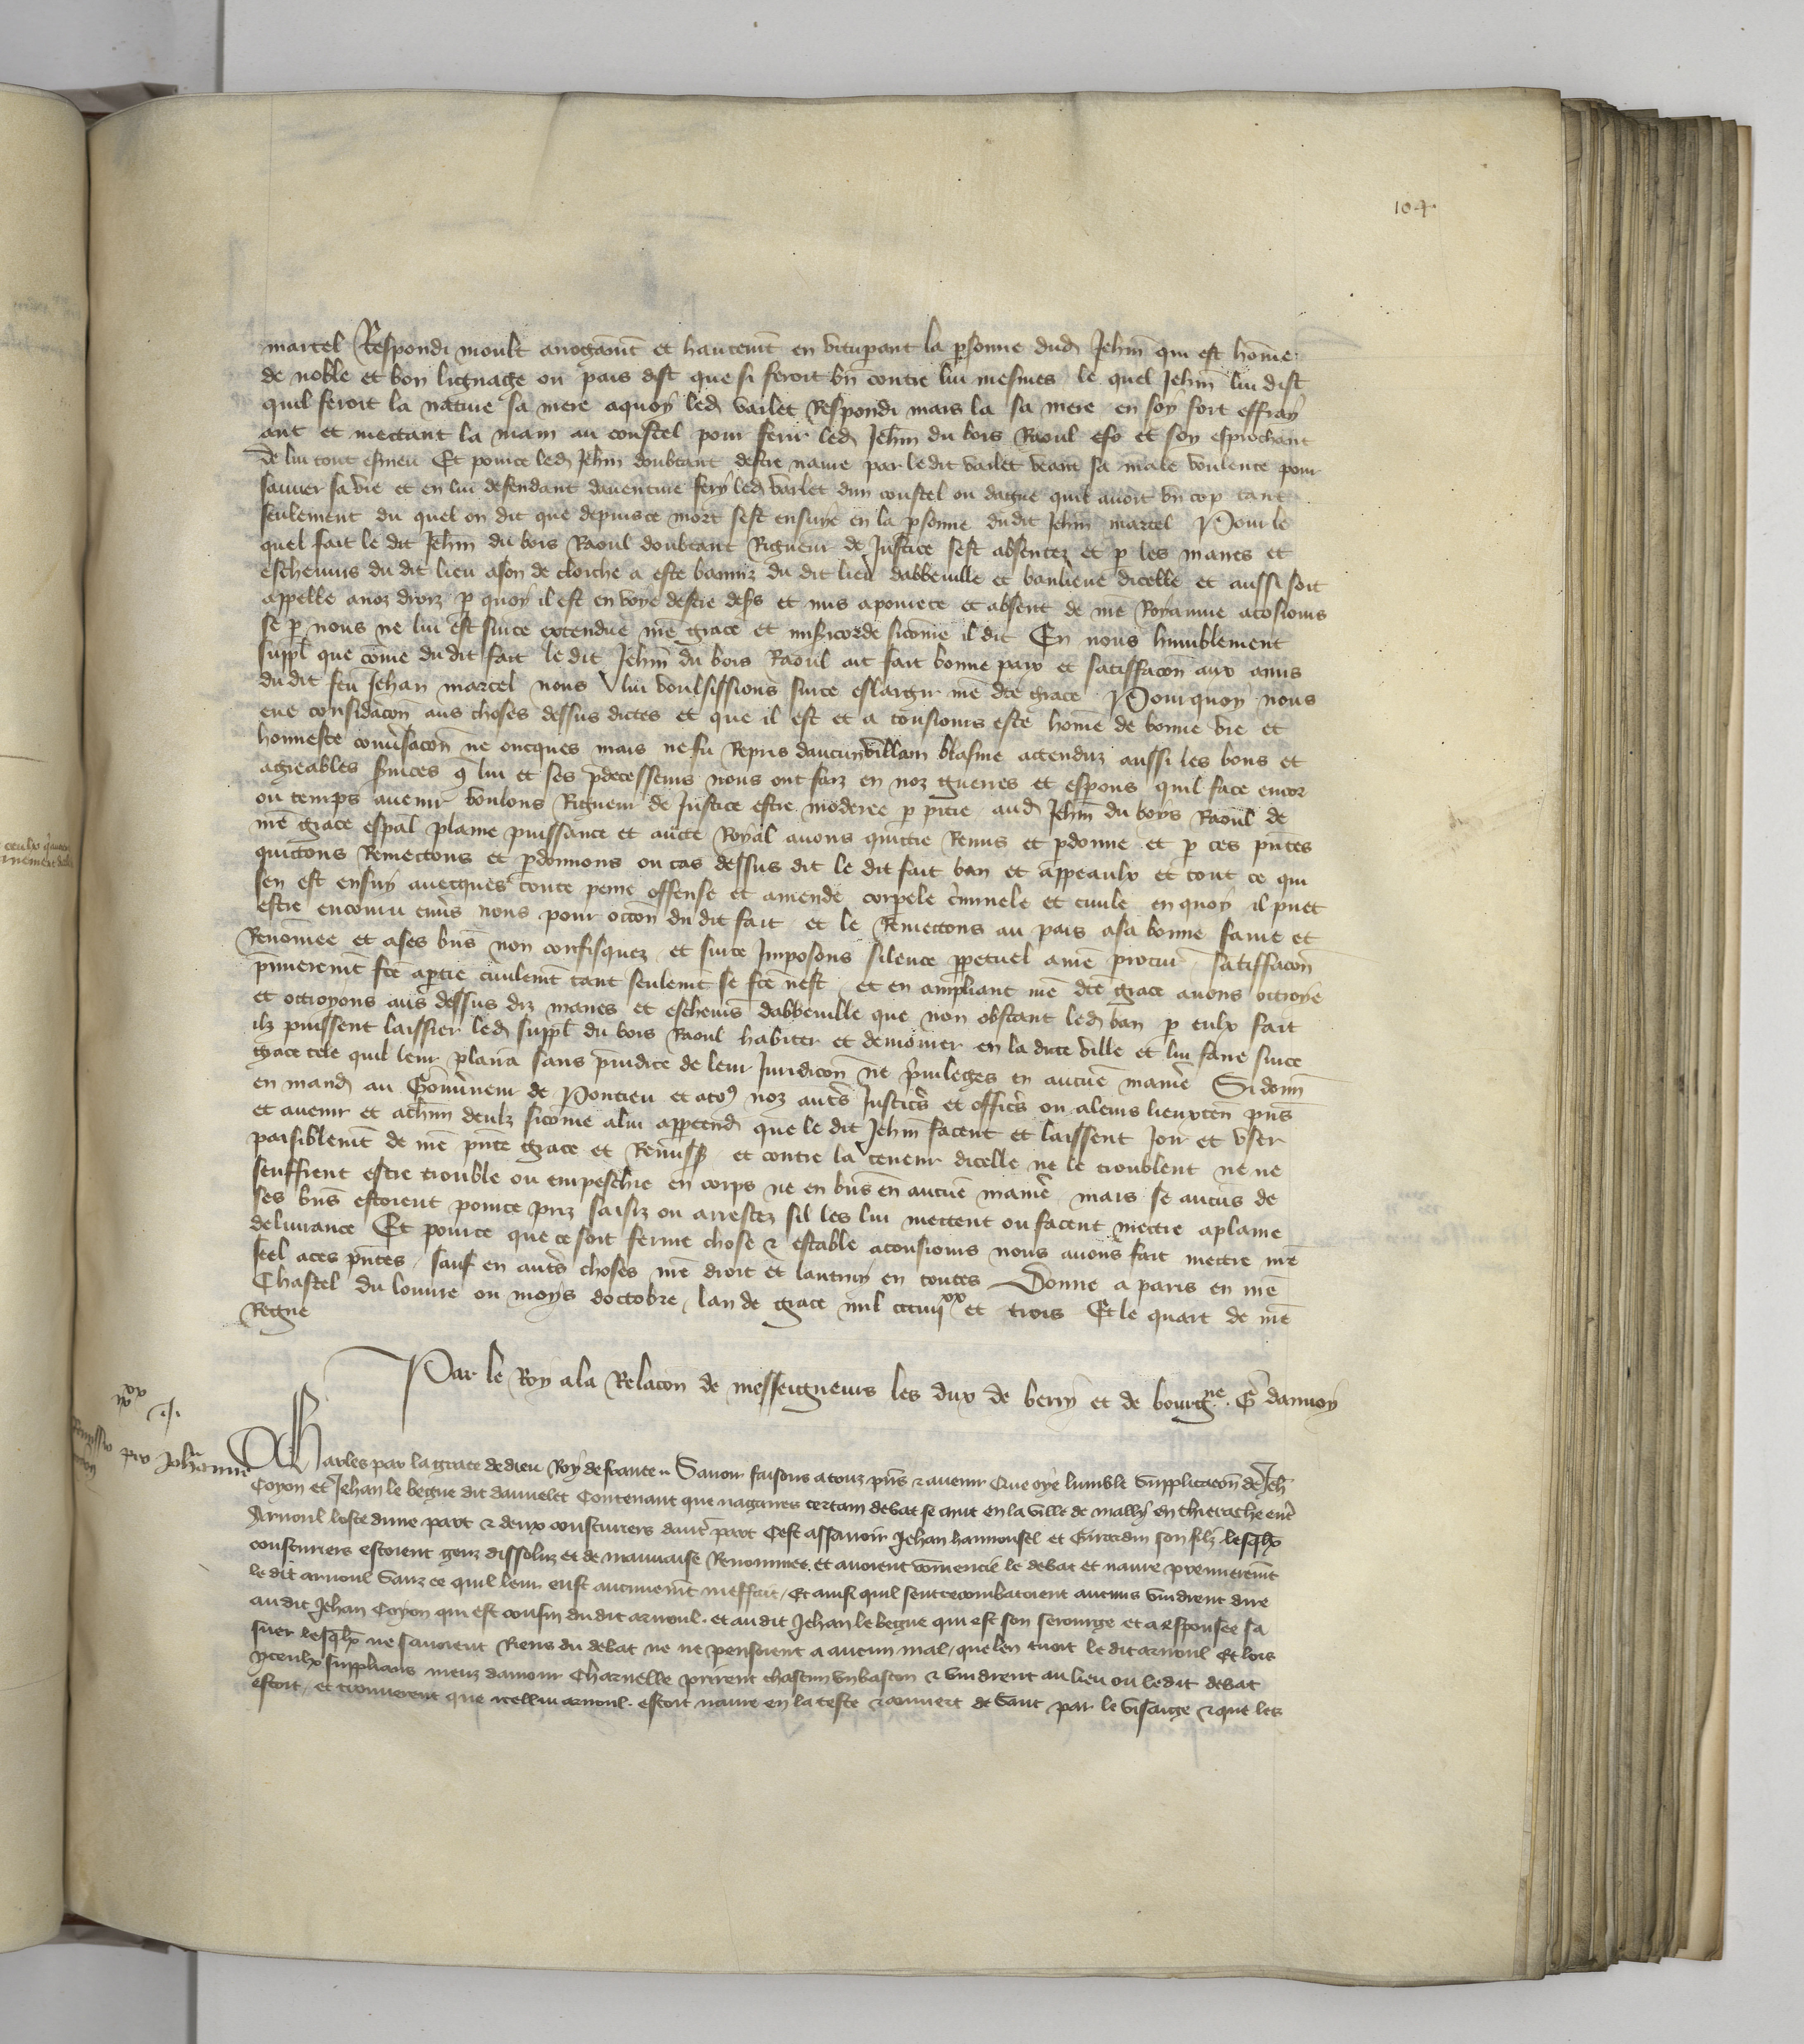 104
martel Respondi moult arrogaument et hautement en vituperant la personne dud Jehan qui est homme
de noble et bon lignage ou pais dist que si feroit un contre lui mesmes le quel Jehan lui dist
quil feroit la sa mere a quoy led varlet Respondi mais la sa mere en soy fort effray
ant et mettant la main au coustel pour ferir led Jehan du bois Raoul et soy aprochant
de lui tout esmeu Et pource led Jehan doubtant destre navre par le dit varlet veant sa male voulente pour
sauver sa vie et en lui defendant daventure fery led varlet dun coustel ou dague quil avoit un cop tant
seulement du quel on dit que depuis ce mort sest ensuye en la personne du dit Jehan martel Pour le
quel fait le dit Jehan du bois Raoul doubtant Rigueur de Justice sest absentez et par les maires et
eschevins du dit lieu a son de cloiche a este banniz du dit lieu dabbeville et banlieue dicelle et aussi soit
appelle a noz droiz par quoy il est en voye destre desers et mis a povrete et absent de nostre Royaume a tousjours
se par nous ne lui est sur ce extendue nostre grace et misericorde sicomme il dit En nous humblement
suppliant que comme du dit fait le dit Jehan du bois Raoul ait fait bonne paix et satisfacon aux amis
du dit feu Jehan martel nous lui voulsissions sur ce eslargir nostre dicte grace Pour quoy nous
eue consideracon aus choses dessus dictes et que il est et a tousjours este homme de bonne vie et
honneste conversacon ne oncques mais ne fu Repris daucun villain blasme attenduz aussi les bons et
agreables services que lui et ses predecesseurs nous ont faiz en noz guerres et esperons quil face encor
ou temps avenir voulons Rigueur de Justice estre moderee par pitie aud Jehan du boys Raoul de
nostre grace especial plaine puissance et auctorite Royal avons quittie Remis et pardonne et par ces presentes
quittons Remettons et pardonnons ou cas dessus dit le dit fait ban et appeaulx et tout ce qui
sen est ensuy avecques toute peine offense et amende corpele criminele et civile en quoy il puet
estre encouru envers nous pour occasion du dit fait et le Remettons au pais a sa bonne fame et
Renommee et a ses biens non confisquez et sur ce Imposons silence perpetuel a nostre procureur satisfacon
premierement faicte a partie civilement tant seulement se faicte nest et en ampliant nostre dicte grace avons ottroye
et ottroyons aus dessus diz maires et eschevins dabbeville que non obstant led ban par eulx fait
ilz puissent laissier led suppliant du bois Raoul habiter et demourer en la dicte ville et lui faire sur ce
grace tele quil leur plaira sans prejudice de leur Juridicon ne privileges en aucune maniere Si donnons
en mandement au Gouverneur de Pontieu et a touz noz autres Justiciers et officiers ou a leurs lieuxtenans presens
et avenir et a chascun deulx sicomme a lui appartendra que le dit Jehan facent et laissent Joir et user
paisiblement de nostre presente grace et Remission et contre la teneur dicelle ne le troublent ne ne
seuffrent estre trouble ou empeschie en corps ne en biens en aucune maniere mais se aucuns de
ses biens estoient pource priz saisiz ou arrestez sil les lui mettent ou facent mettre a plaine
delivrance Et pource que ce soit ferme chose et estable a tousjours nous avons fait mettre nostre
seel a ces presentes sauf en autres choses nostre droit et lautruy en toutes Donne a paris en nostre
Chastel du louvre ou moys doctobre lan de grace mil ccciiii xx et trois Et le quart de nostre
Regne
Par le Roy a la Relacon de messeigneurs les dux de berry et de bourgne G dannoy
pro Johanne
Charles par la grace de dieu Roy de france Savoir faisons a touz presens et avenir Que oye lumble supplicacion de Jehan
Coyon et Jehan le begue dit dannelet Contenant que nagaires certain debat se mut en la ville de mally en thierache entre
Arnoul loste dune part et deux cousturiers dautre part Cest assavoir Jehan hannoufel et Girardin son filz lesquelx
cousturiers estoient genz dissoluz et de mauvaise Renommee et avoient commencie le debat et navre premierement
le dit arnoul Sanz ce quil leur eust aucunement meffait Et ainsi quil sentrecombatoient aucuns vindrent dire
au dit Jehan Coyon qui est cousin du dit arnoul et au dit Jehan le begue qui est son serourge et a espousee sa
suer lesquelx ne savoient Riens du debat ne ne pensoient a aucun mal que len tuoit le dit arnoul Et lors
yceulx supplians meuz damour Charnelle prirent chascun un baston et vindrent au lieu ou le dit debat
estoit et trouverent que icellui arnoul estoit navre en la teste et couvert de sanc par le visaige et que les